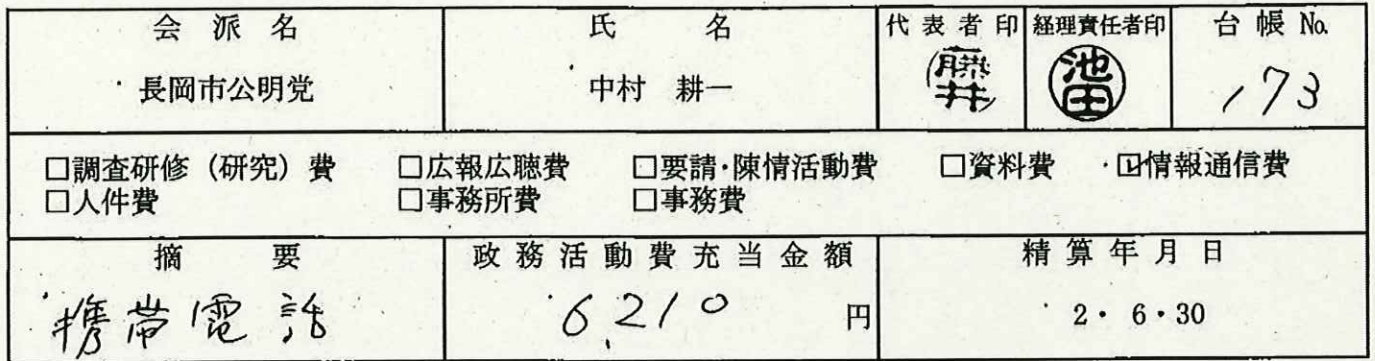 会派名 氏名 代表者印 経理責任者印 台帳№
長岡市公明党 中村 耕一 藤井 池田 173
□調査研修（研究）費 □広報広聴費 □要請・陳情活動費 □資料費 ☑情報通信費
□人件費 □事務所費 □事務費
摘要 政務活動費充当金額 精算年月日
携帯電話 6210 円 2・6・30